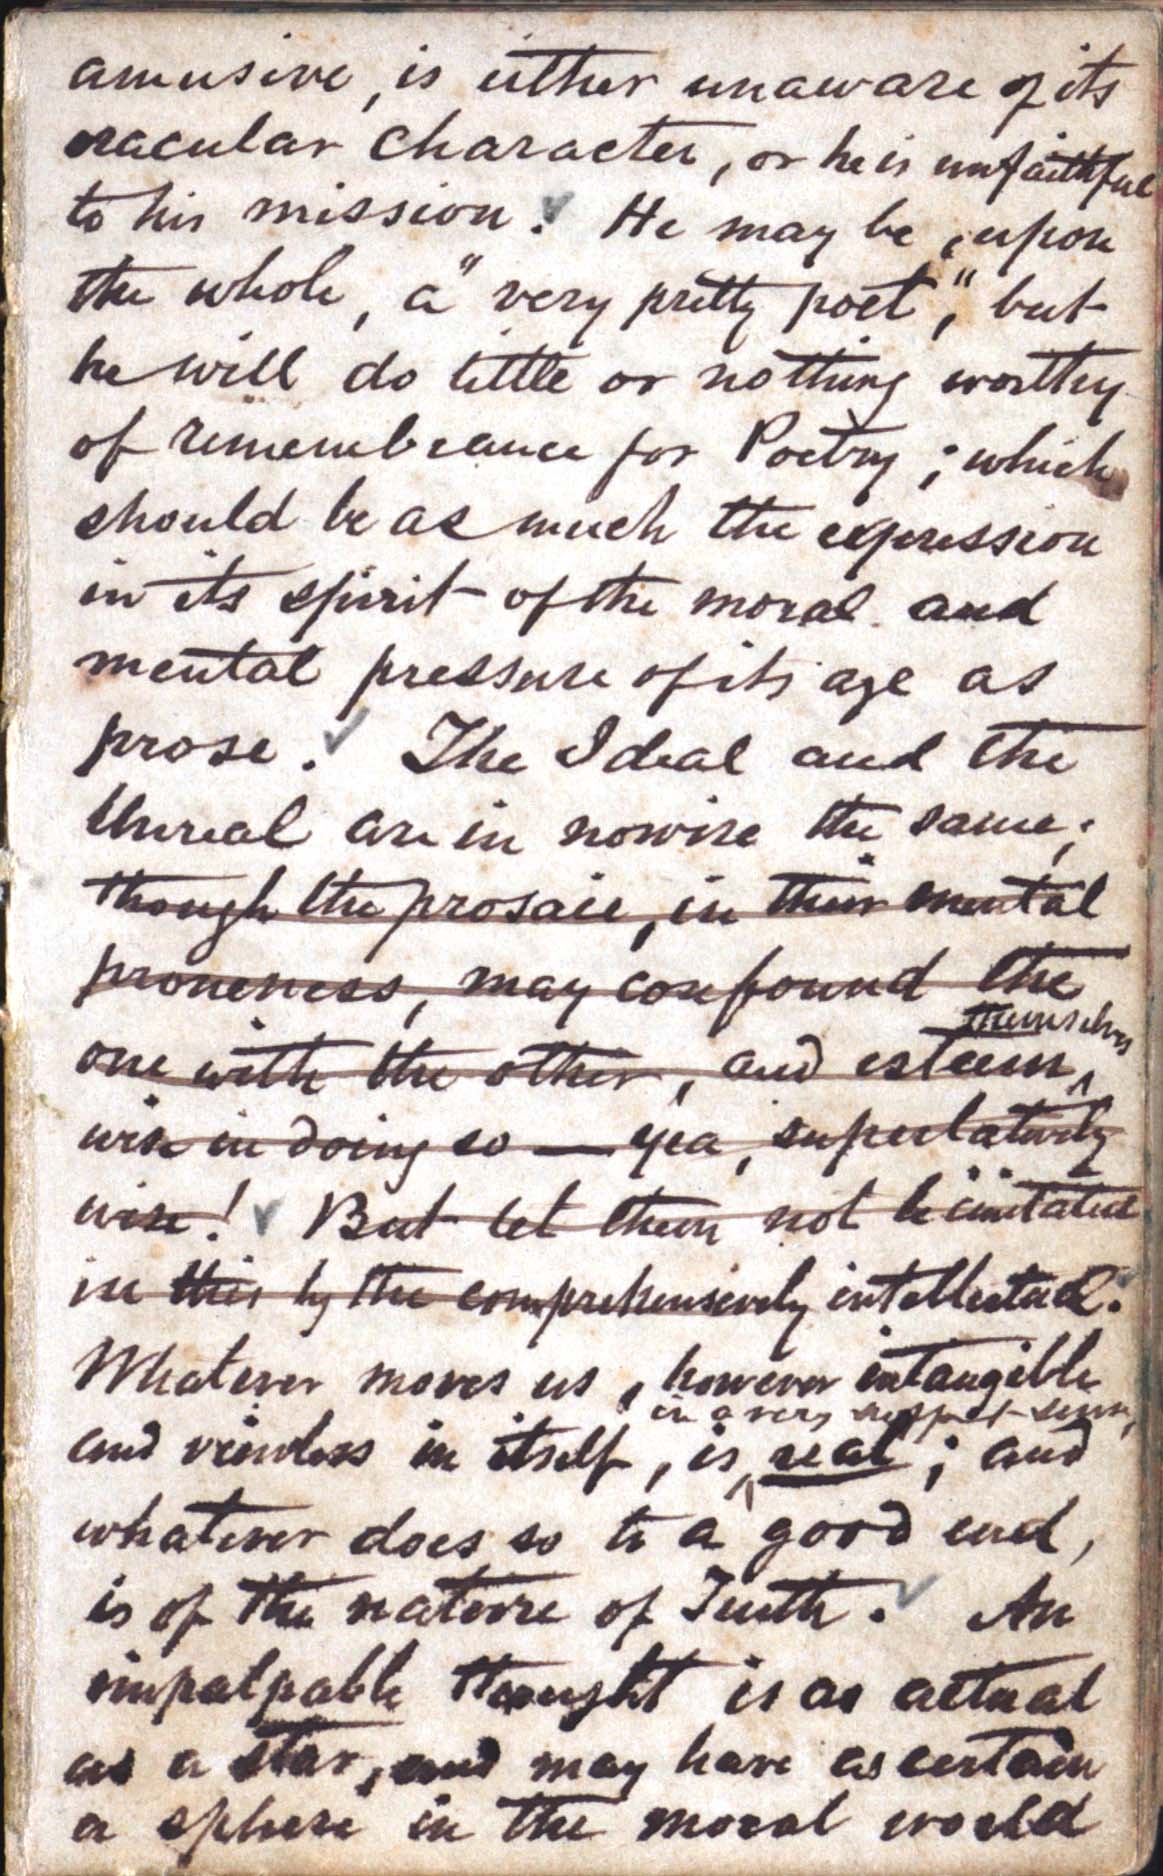 amusive, is either unaware of its
oracular character, or he is unfaithful
to his mission. He may be, upon
the whole, a "very pretty poet", but
he will do little or nothing worthy
of remembrance for Poetry; which
should be as much the expression
in its spirit of the moral and
mental pressure of its age as
prose. The Ideal and the
Unreal are in nowise the same;
though the prosaic, in their mental
proneness, may confound the
themselves
one with the other, and esteem
wise in doing so — yea, superlatively
wise! But let them not be imitated
in this by the comprehensively intellectual.
Whatever moves us, however intangible
in a very sense,
and viewless in itself, is real; and
whatever does so to a good end,
is of the nature of Truth. An
impalpable thought is as actual
as a star, and may have as certain
a sphere in the moral world